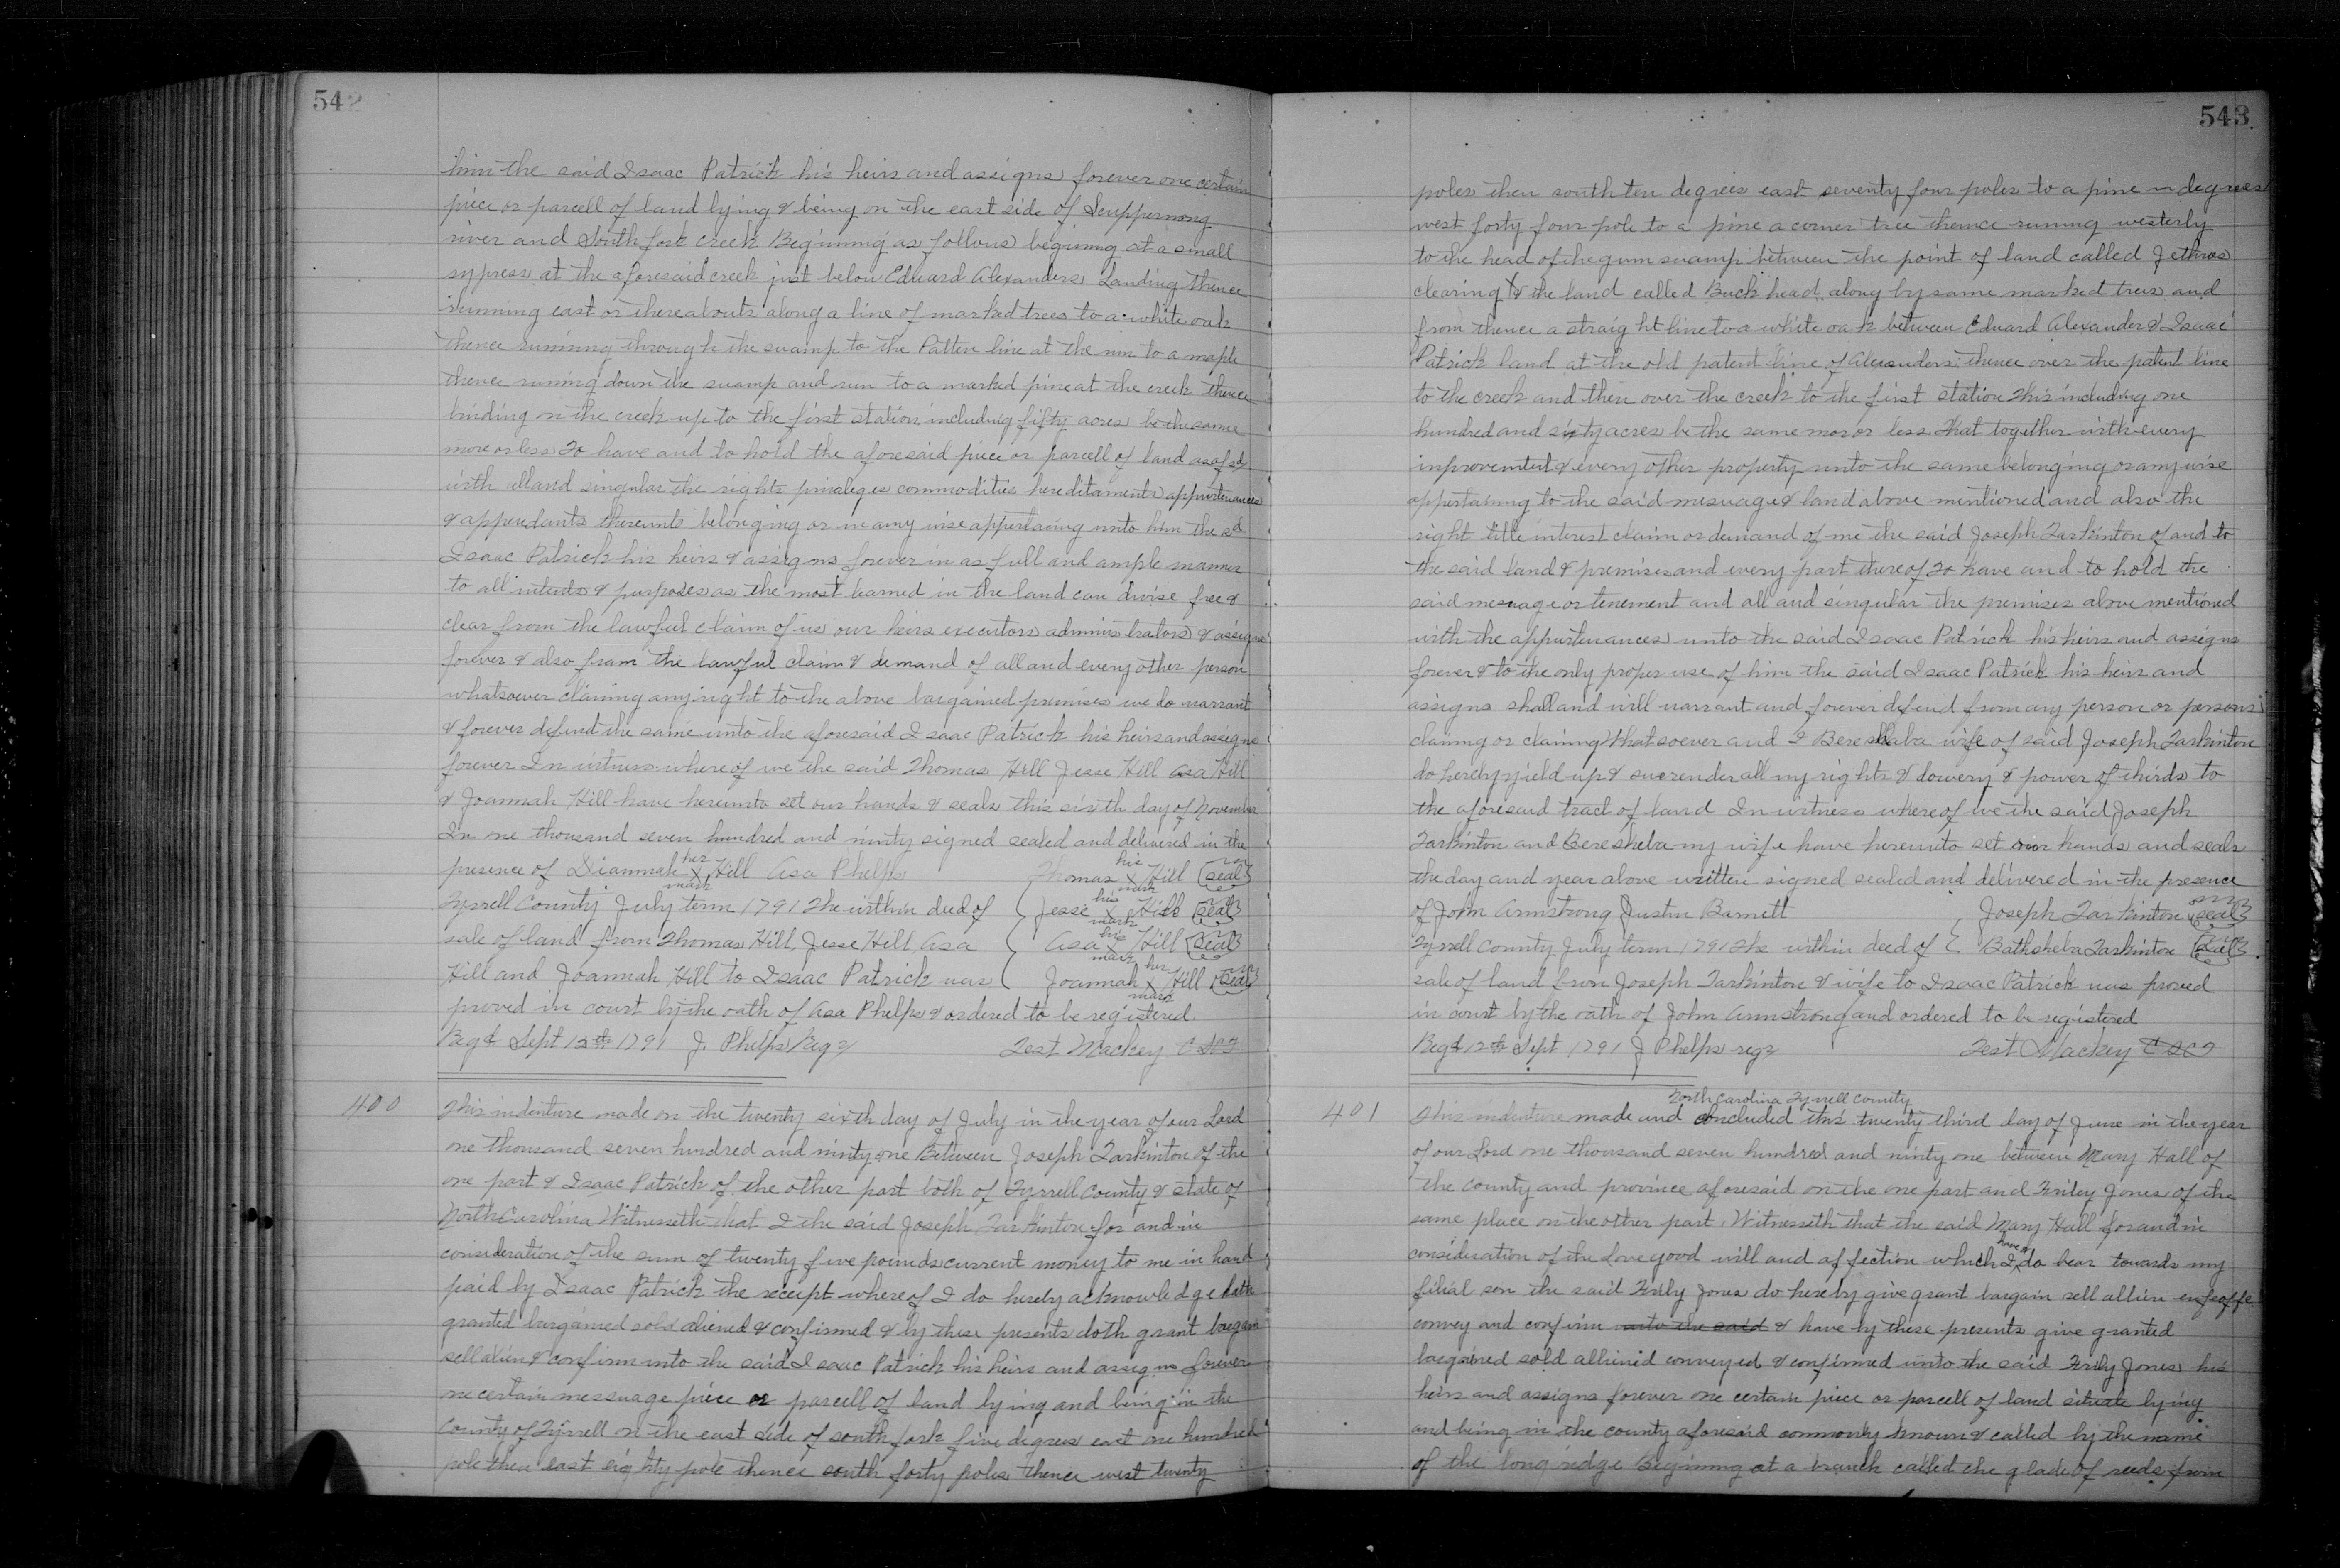 542
him the said Isaac Patrick his heirs and assigns forever one certain
piece or parcell of land lying & being on the east side of Scuppernong
river and South fork creek Begining as follows begining at a small
sypress at the aforesaid creek just below Edward Alexanders Landing thence
running east or thereabouts along a line of marked trees to a white oak
thence running through the swamp to the Patten line at the run to a maple
thence runing down the swamp and run to a marked pine at the creek thence
binding on the creek up to the first station including fifty acres be the same
more or less To have and to hold the aforesaid piece or parcell of land as afsd
with all and singular the rights privileges commodities hereditaments appurtenances
& appendants thereunto belonging or in any wise appertaining unto him the sd
Isaac Patrick his heirs & assigns forever in as full and ample manner
to all intents & purposes as the most learned in the land can divise free &
clear from the lawful claim of us our heirs executors administrators & assigns
forever & also from the lawful claim & demand of all and every other person
whatsoever claiming any right to the above bargained premises we do warrant
& forever defend the same unto the aforesaid Isaac Patrick his heirs and assigns
forever In witness where of we the said Thomas Hill Jesse Hill Asa Hill
& Joannah Hill have hereunto set our hands & seals this sixth day of November
In one thousand seven hundred and ninty signed sealed and delivered in the
presence of Diannah her X mark Hill Asa Phelps Thomas his X mark Hill seal
Tyrrell County July term 1791 The within deed of Jesse his X mark Hill seal
sale of land from Thomas Hill, Jesse Hill, Asa Asa his X mark Hill seal
Hill and Joannah Hill to Isaac Patrick was Joannah her X mark Hill seal
proved in court by the oath of Asa Phelps & ordered to be registered.
Regd Sept 12th 1791 J. Phelps Regr Test Mackey
400
This indenture made on the twenty sixth day of July in the year of our Lord
one thousand seven hundred and ninty one Between Joseph Tarkinton of the
one part & Isaac Patrick of the other part both of Tyrrell County & state of
North Carolina Witnesseth that I the said Joseph Tarkinton for and in
consideration of the sum of twenty five pounds current money to me in hand
paid by Isaac Patrick the receipt where of I do hereby acknowledge hath
granted bargained sold aliened & confirmed & by these presents doth grant bargain
sell alien & confirm unto the said Isaac Patrick his heirs and assigns forever
one certain messuage piece or parcell of land lying and being in the
County of Tyrrell on the east side of south fork five degrees east one hundred
pole then east eighty pole thence south forty poles thence west twenty
543
poles then south ten degrees east seventy four poles to a pine degrees
west forty four pole to a pine a corner tree thence runing westerly
to the head of the gum swamp between the point of land called Jethros
clearing & the land called Buck head along by same marked trees and
from thence a straight line to a white oak between Edward Alexander & Isaac
Patrick land at the old patent line of Alexanders thence over the patent line
to the creek and then over the creek to the first station This including one
hundred and sixty acres be the same mor or less That together with every
improvement & every other property unto the same belonging or any wise
appertaining to the said mesuage & land above mentioned and also the
right title interest claim or demand of me the said Joseph Tarkinton of and to
the said land & premises and every part thereof To have and to hold the
said mesuage or tenement and all and singular the premises above mentioned
with the appurtenances unto the said Isaac Patrick his heirs and assigns
forever & to the only proper use of him the said Isaac Patrick his heirs and
assigns shall and will warrant and forever defend from any person or persons
claimg or claiming Whatsoever and I Beresheba wife of said Joseph Tarkinton
do hereby yield up & surrender all my rights & dowery & power of thirds to
the aforesaid tract of land In witness where of we the said Joseph
Tarkinton and Beresheba my wife have hereunto set our hands and seals
the day and year above written signed sealed and delivered in the presence
of John Armstrong Justin Barnett Joseph Tarkinton seal
Tyrrell County July term 1791 The within deed of Bathsheba Tarkinton seal
sale of land from Joseph Tarkinton & wife to Isaac Patrick was proved
in court by the oath of John Armstrong and ordered to be registered
Regd 12th Sept 1791 J Phelps regr Test Mackey
401
North Carolina Tyrrell County
This indenture made and concluded this twenty third day of June in the year
of our Lord one thousand seven hundred and ninty one between Mary Hall of
the county and province aforesaid on the one part and Friley Jones of the
same place on the other part Witnesseth that the said Mary Hall for and in
consideration of the Love good will and affection which I have & do bear towards my
filial son the said Frily Jones do hereby give grant bargain sell allien enfeoffe
convey and confirm unto the said & have by these presents give granted
bargained sold alliened conveyed & confirmed unto the said Frily Jones his
heirs and assigns forever one certain piece or parcell of land situate lying
and being in the county aforesaid commonly known & called by the name
of the long ridge Begining at a branch called the glade of reeds from